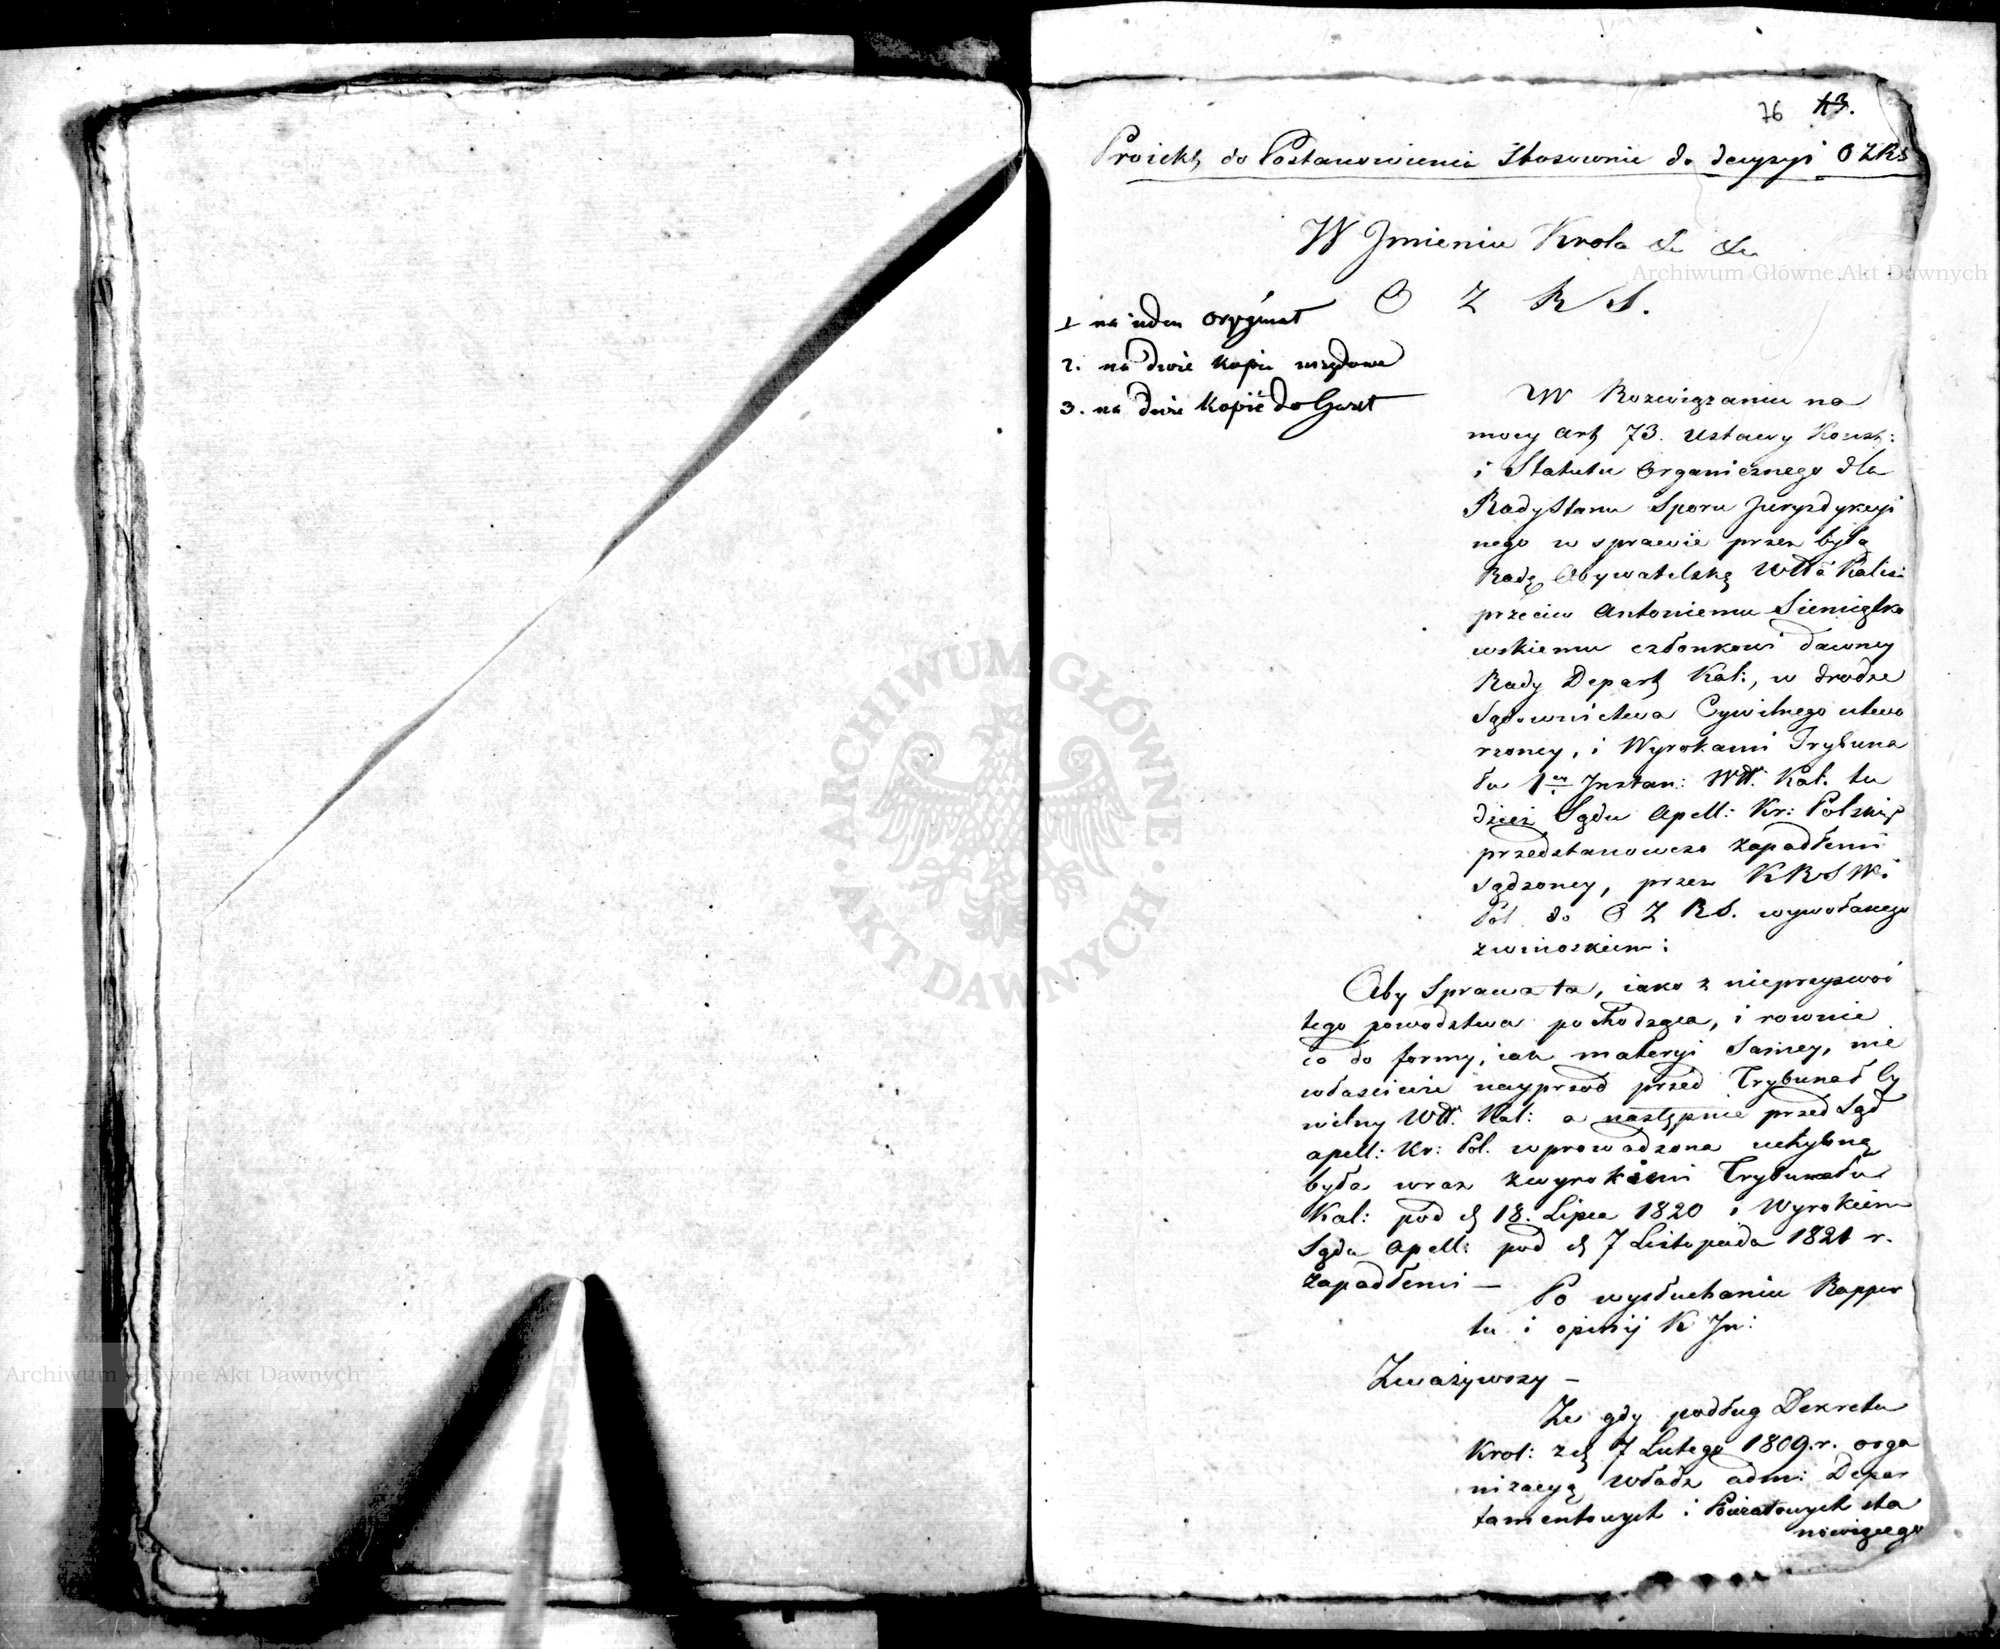 76 43.
Proiekt do Postanowienia Stosownie do decyzyi O Z R S
W Jmieniu Krola &c &c
O Z R S.
1 na ieden oryginał
2. na dwie kopie urzędowe
3. na dwie kopie do Gazet
W Rozwiązaniu na
mocy art 73. Ustawy Konst:
i Statutu Organicznego dla
Rady Stanu Sporu Juryzdykcyi
nego w sprawie przez byłą
Radę Obywatelską Wttwa Kalis:
przeciw Antoniemu Siemiątko
wskiemu członkowi dawney
Rady Depart Kal:, w drodze
Sądownictwa Cywilnego utwo
rzoney, i Wyrokami Trybuna
łu 1ey Jnstan: Wtt. Kal. tu
dzież Sądu Apell: Kr: Polskie
przedstanowczo zapadłemi
sądzoney, przez K R S W i
Pol do O Z R S. wywołanego
z wnioskiem:
Aby Sprawa ta, iako z nieprzyzwoi
tego powodztwa pochodząca, i rownie
co do formy, iak materyi Samey, nie
właściwie nayprzod przed Trybunał Cy
wilny Wtt. Kal: a następnie przed Sąd
apell: Kr: Pol. wprowadzona uchyloną
była wraz z wyrokiem Trybunału
Kal: pod d 18. Lipca 1820 i Wyrokiem
Sądu Apell: pod d 7 Listopada 1821 r.
zapadłemi —
Po wysłuchaniu Rappor
tu i opinij K Jn:
Zważywszy —
Ze gdy podług Dekretu
Krol: z d 7 Lutego 1809. r. orga
nizacyą władz adm: Depar
tamentowych i Powiatowych sta
nowiącego
Archiwum Główne Akt Dawnych
Archiwum Główne Akt Dawnych
ARCHIWUM GŁÓWNE AKT DAWNYCH